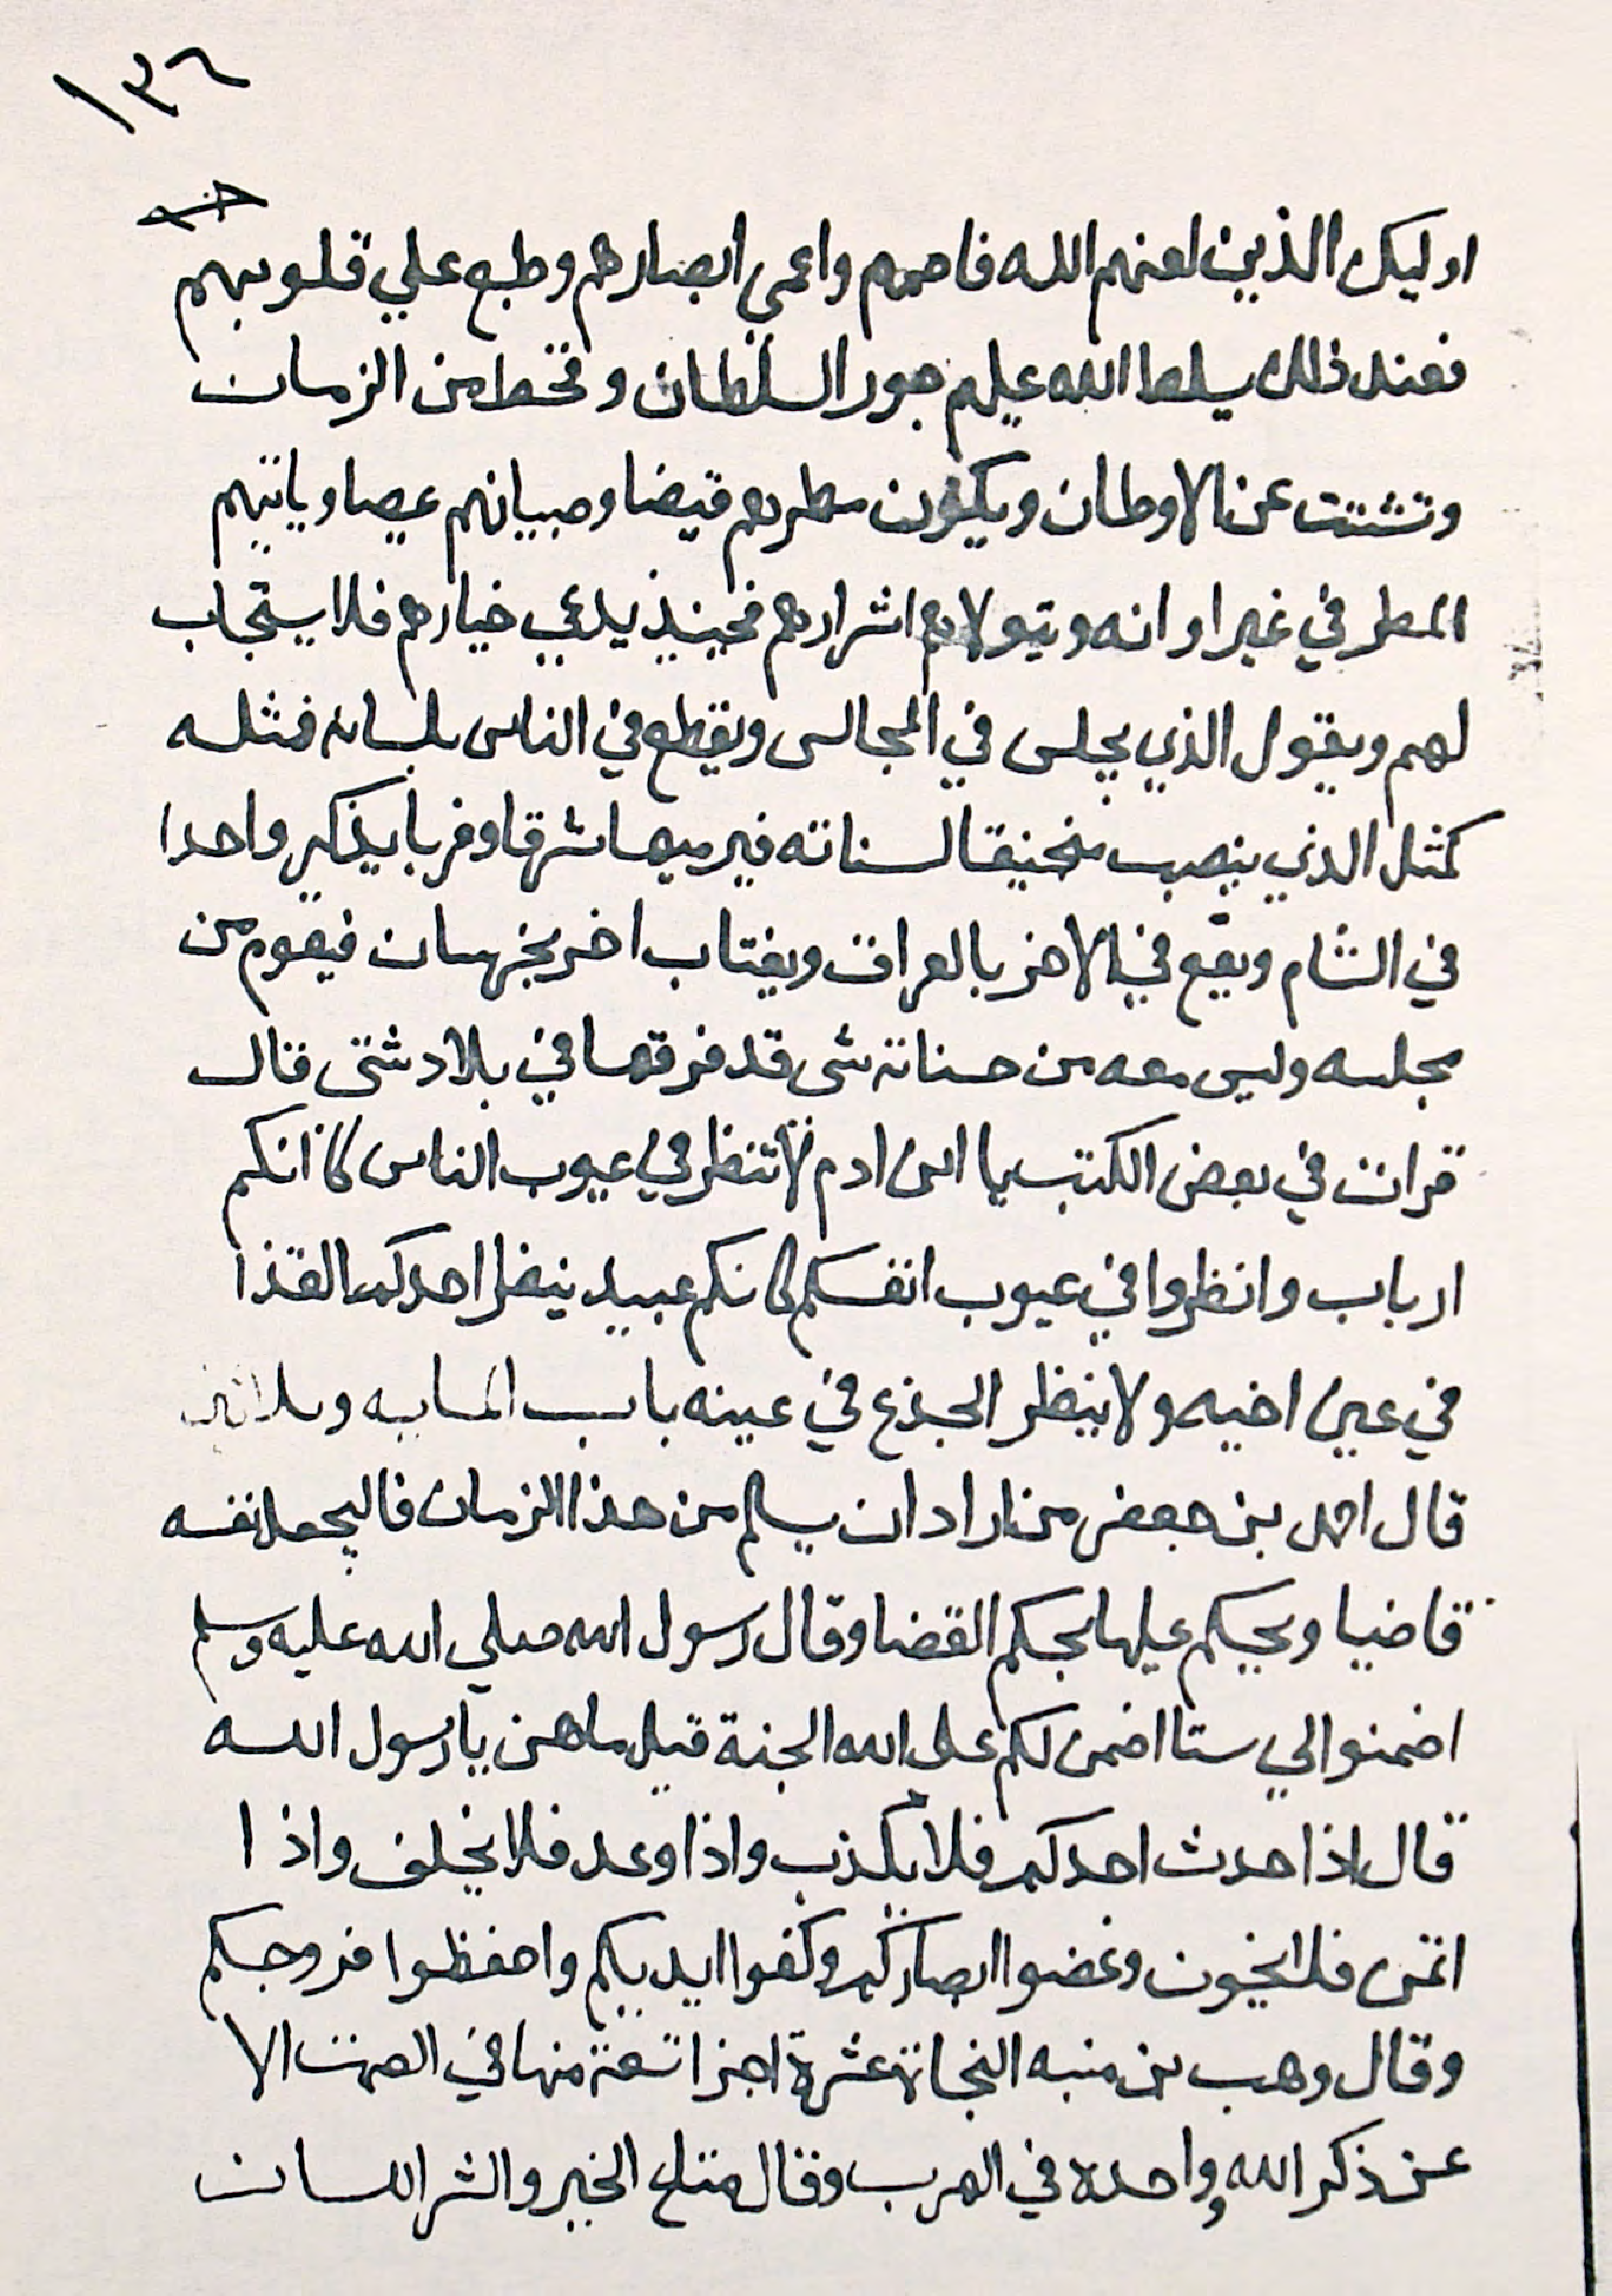 ١٣٦
اوليك الذين لعنهم الله فاصمهم واعمى ابصارهم وطبع علي قلوبهم
فعند ذلك يسلط الله عليهم جور السلطان وقحط من الزمان
وتشتت عن الاوطان ويكون مطرهم قيضا وصبيانهم عيصا وياتيهم
المطر في غير اوانه ويتولاهم اشرارهم فحينيذ يدعي خيارهم فلا يستجاب
لهم ويقول الذي يجلس في المجالس ويقطع في الناس بلسانه فمثله
كمثل الذي ينصب منجنيقا لسناته فيرميها شرقا وغربا يذكر واحدا
في الشام ويقع في الاخر بالعراق ويغتاب اخر بخرسان فيقوم من
مجلسه وليس معه من حسناته شى قد فرقها في بلاد شتى قال
قرات في بعض الكتب يا ابن ادم لا تنظر في عيوب الناس كاانكم
ارباب وانظروا في عيوب انفسكم كانكم عبيد ينظر احدكم القذا
في عين اخيه ولا ينظر الجذع في عينه باب المايه
قال احمد بن جعفر من اراد ان يسلم من هذا الزمان فاليجعل نفسه
قاضيا ويحكم عليها بحكم القضا وقال رسول الله صلي الله عليه وسلم
اضمنوالي ستا اضمن لكم على الله الجنة قيل ما هن يا رسول الله
قال اذا حدث احدكم فلا يكذب واذا وعد فلا يخلف واذا
اتمن فلا يخون وغضوا ابصاركم وكفوا ايديكم واحفظوا فروجكم
وقال وهب بن منبه النجاة عشرة اجزا تسعة منها في الصمت الا
عن ذكر الله وواحده في الهرب وقال مفتاح الخير والشر اللسان